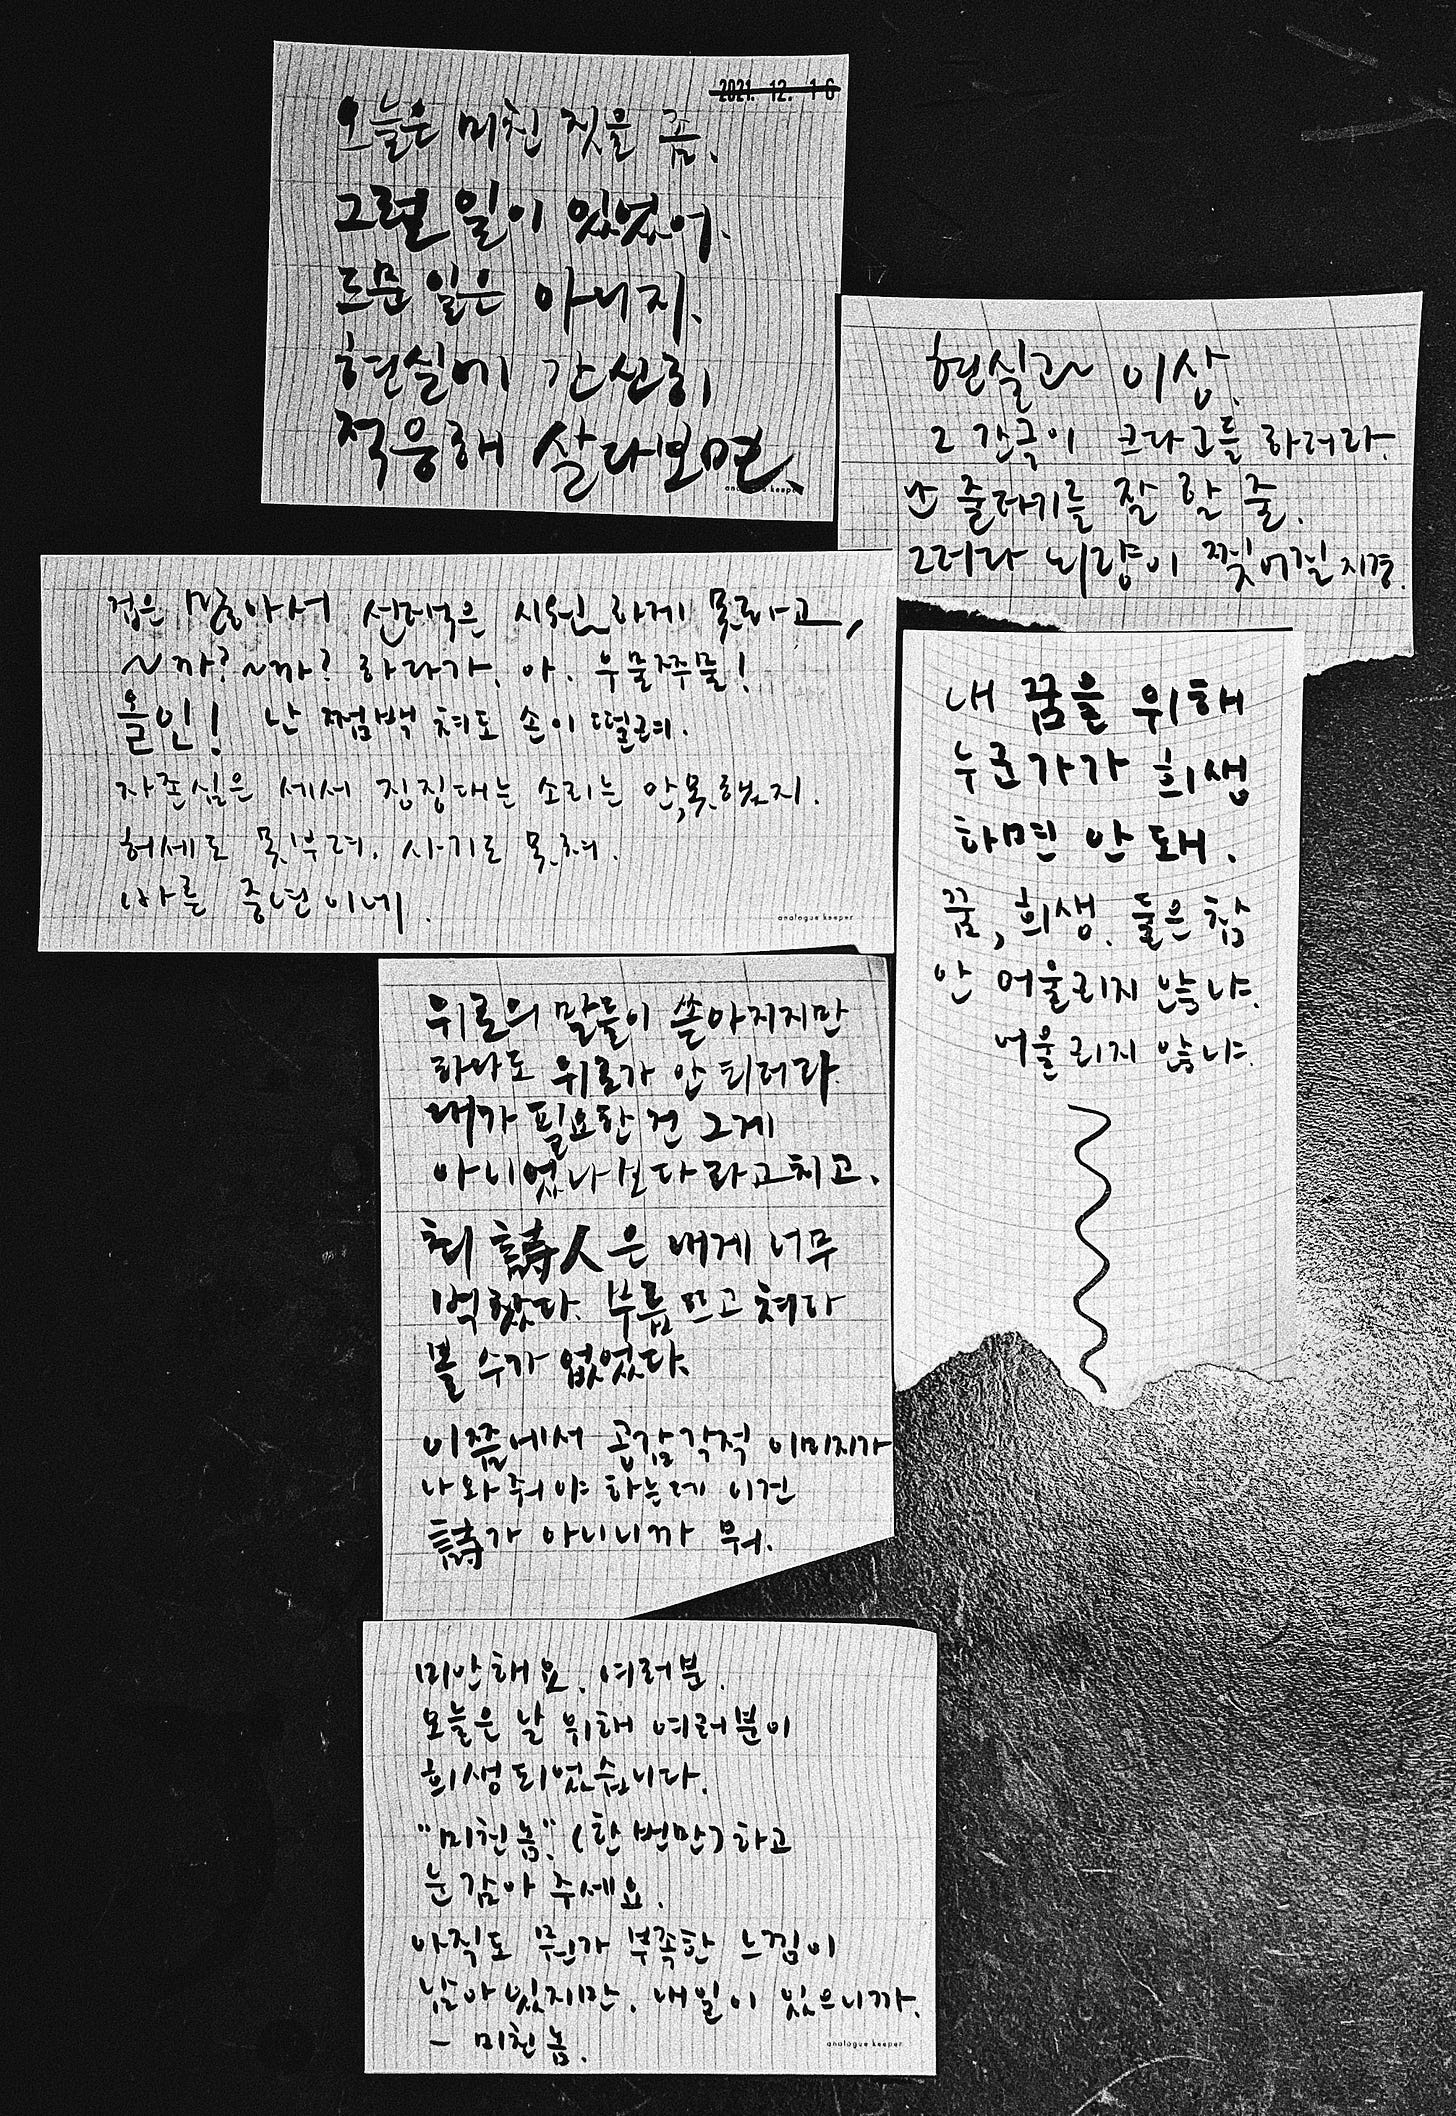 2021. 12. 16
오늘은 미친 짓을 좀.
그럴 일이 있었어.
드문 일은 아니지.
현실에 간신히
적응해 살다보면.
analogue keeper
현실과 이상.
그 간극이 크다고들 하더라.
난 줄타기를 잘 할 줄.
그러다 뇌량이 찢어질 지경.
겁은 많아서 선택은 시원하게 못하고,
~까? ~까? 하다가. 아. 우물쭈물!
올인! 난 쩜백 쳐도 손이 떨려.
자존심은 세서 징징대는 소리는 안,못했지.
허세도 못부려. 사기도 못쳐.
바른 중년이네.
analogue keeper
내 꿈을 위해
누군가가 희생
하면 안 돼.
꿈, 희생. 둘은 참
안 어울리지 않냐.
어울리지 않냐.
위로의 말들이 쏟아지지만
하나도 위로가 안 되더라.
내가 필요한 건 그게
아니었나보다 라고 치고.
최 詩人은 내게 너무
벅찼다. 부릅뜨고 쳐다
볼 수가 없었다.
이쯤에서 공감각적 이미지가
나와줘야 하는데 이건
詩가 아니니까 뭐.
미안해요. 여러분.
오늘은 날 위해 여러분이
희생되었습니다.
"미친놈". (한 번만) 하고
눈 감아 주세요.
아직도 뭔가 부족한 느낌이
남아있지만. 내일이 있으니까.
- 미친놈.
analogue keeper